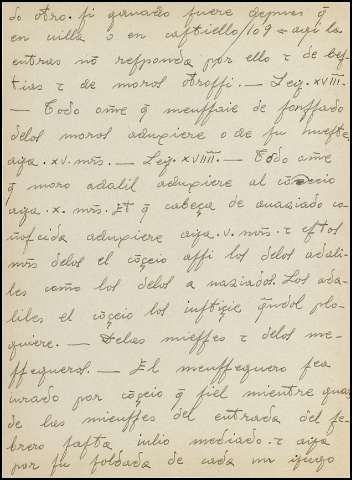 do otro. si ganado fuere depues q̃
en uilla o en castiello / 109 = aqi la
entras nõ responda por ello τ de bes-
tias τ de moros otrossi. — Ley. XVIII.
— Todo ome q̃ meussaie de fonssado
delos moros aduxiere o de su hueste
aya .xv. mr̃s. — Ley. XVIIII. — Todo ome
q̃ moro adalil aduxiere al cõceio
aya .x. mr̃s. Et q̃ cabeça de axiado co-
ñoscida aduxiere aya .v. mr̃s. τ estos
mr̃s delos el cõçeio assi los delos adali-
les como los delos a naziados. Los ada-
liles el cõçeio los iustiçie q̃ndol plo-
guiere. — Delas miesses τ delos me-
ssegueros. — El meussequero sea
iurado por cõçeio q̃ fiel mientre guar
de las mieusses del entrada del fe-
brero fasta iulio mediado. τ aya
por su soldada de cada un iugo